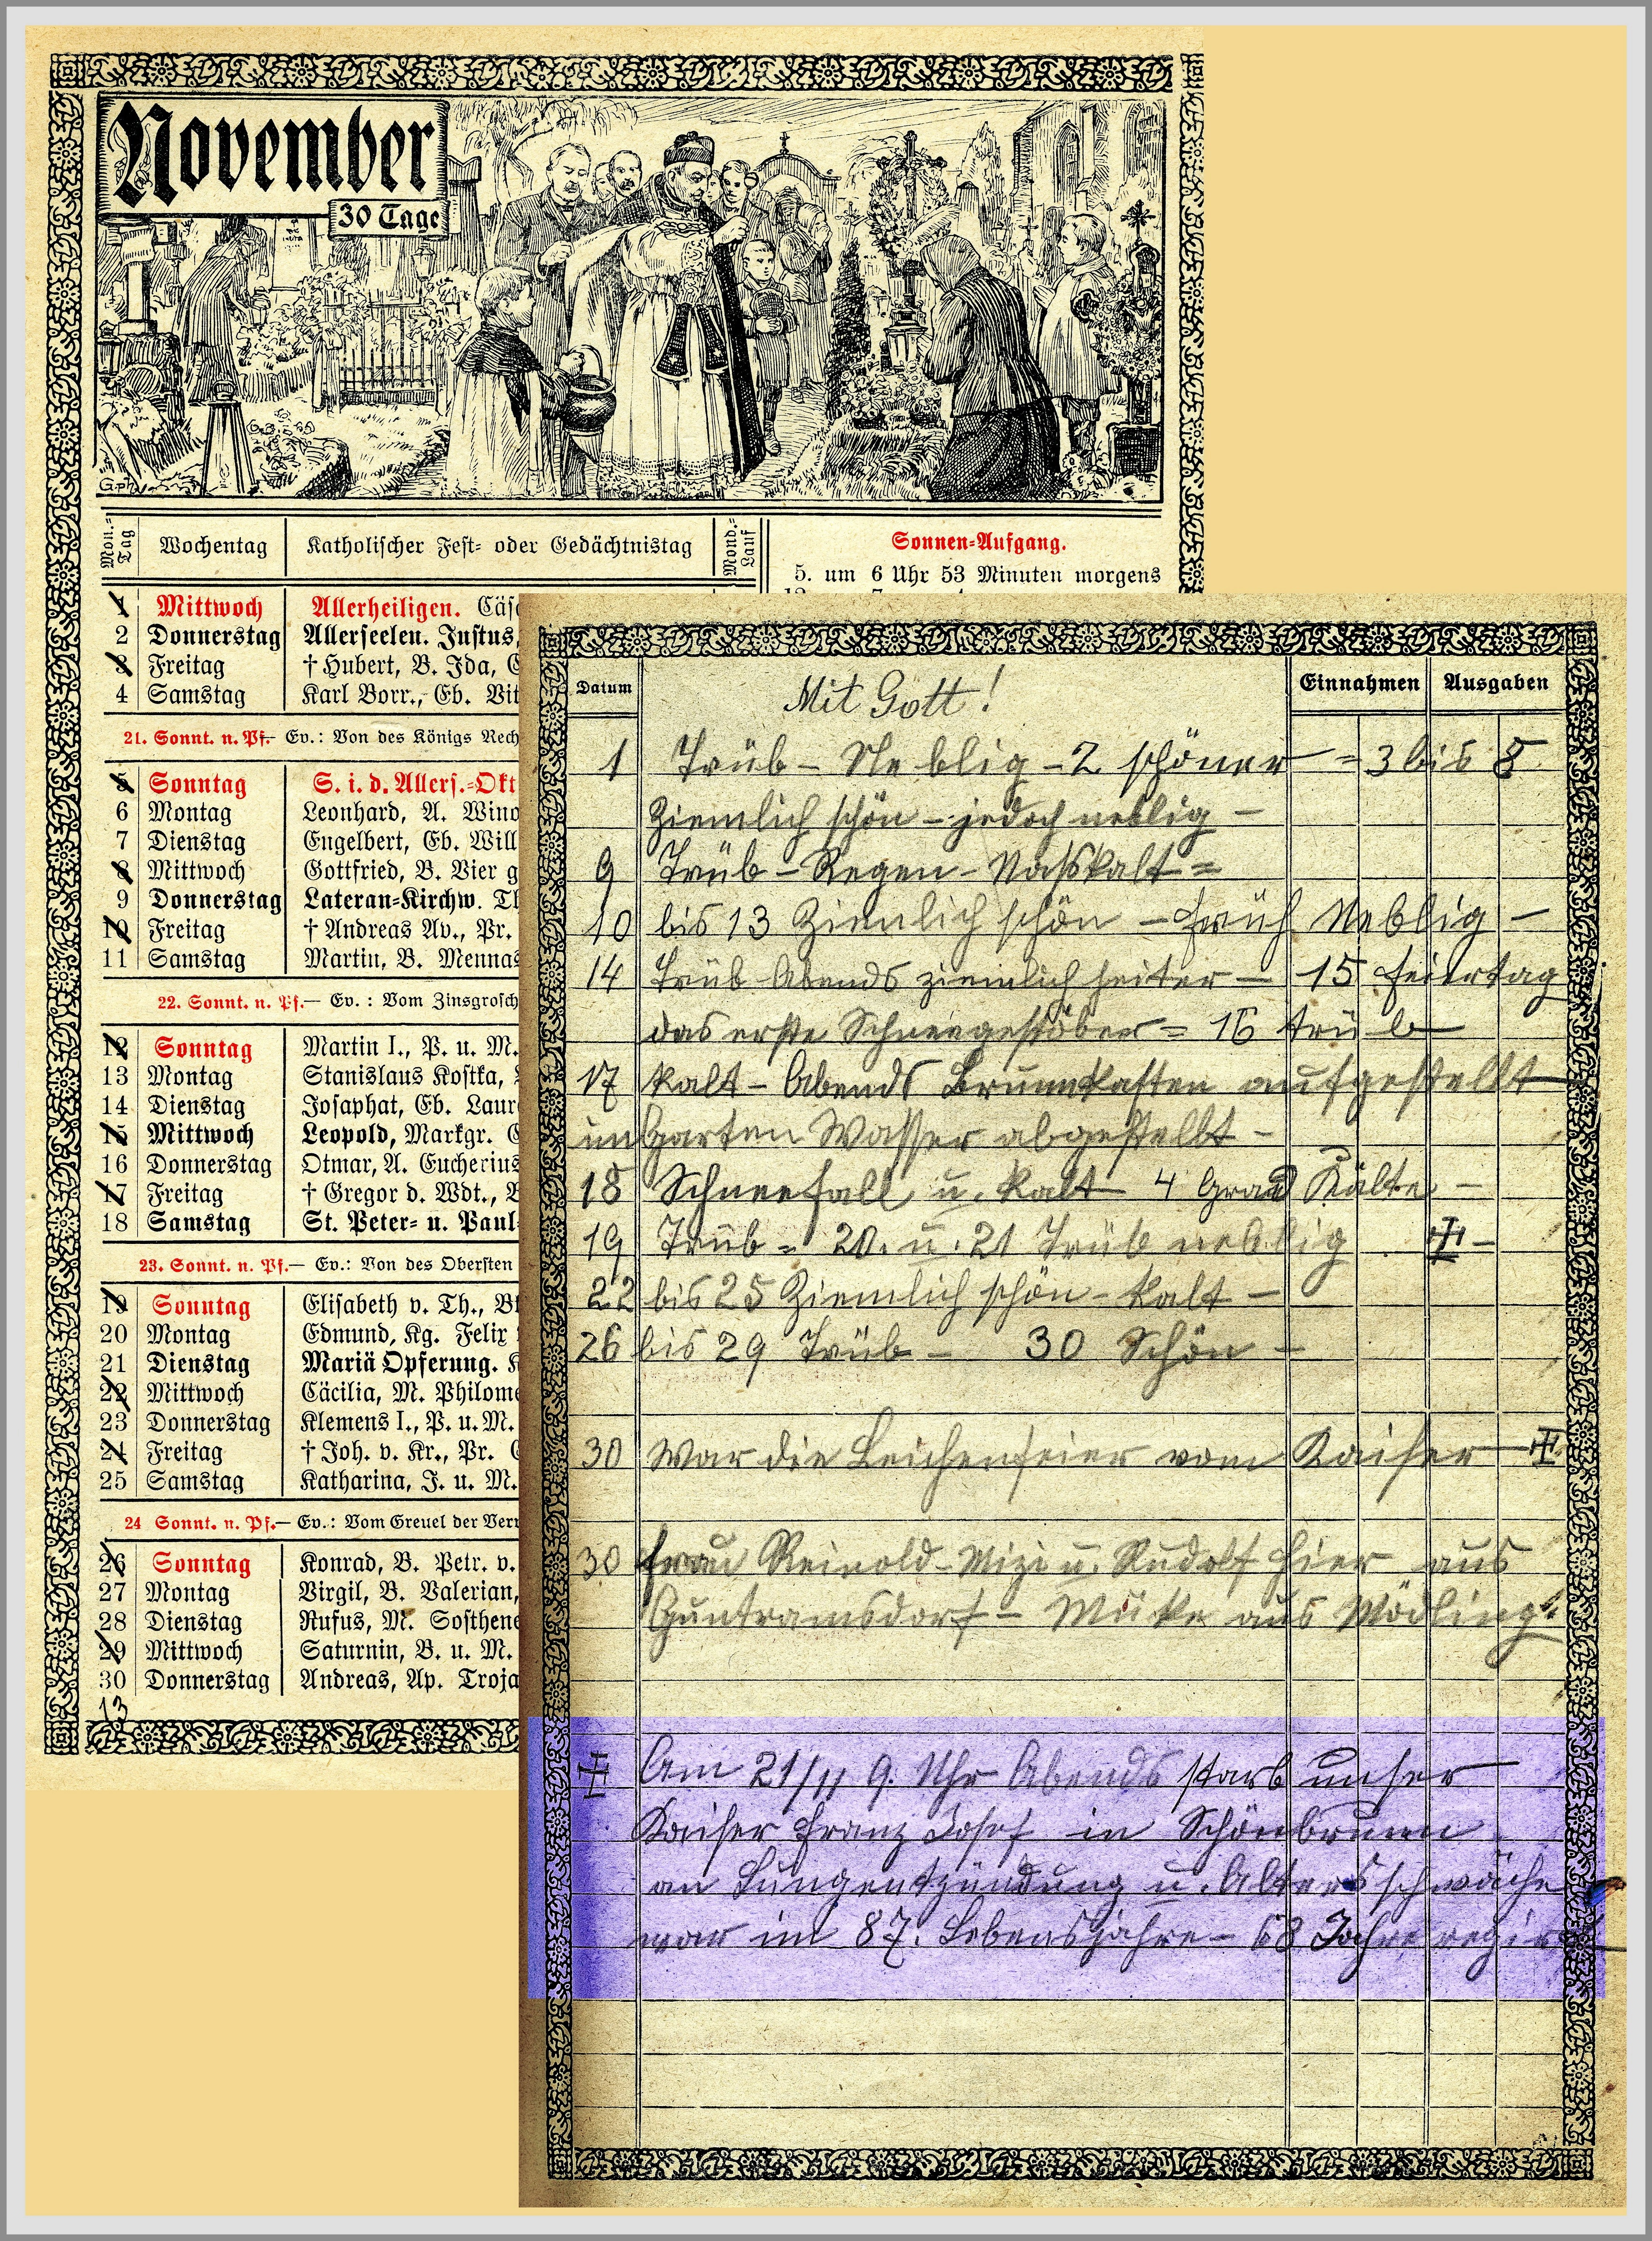 November
30 Tage
G.ph.
Mon.= Tag
Wochentag
Katholischer Fest= oder Gedächtnistag
Mond.= Lauf
Sonnen=Aufgang.
5. um 6 Uhr 53 Minuten morgens
1 Mittwoch Allerheiligen.
2 Donnerstag Allerseelen. Justus,
3 Freitag † Hubert, B. Ida,
4 Samstag Karl Borr., Eb. Vit
21. Sonnt. n. Pf.— Ev.: Von des Königs Rech
5 Sonntag S. i. d. Allers.=Okt
6 Montag Leonhard, A. Wino
7 Dienstag Engelbert, Eb. Will
8 Mittwoch Gottfried, B. Vier g
9 Donnerstag Lateran=Kirchw.
10 Freitag † Andreas Av., Pr.
11 Samstag Martin, B. Mennas
22. Sonnt. n. Pf.— Ev.: Vom Zinsgrosch
12 Sonntag Martin I., P. u. M.
13 Montag Stanislaus Kostka,
14 Dienstag Josaphat, Eb. Laur
15 Mittwoch Leopold, Markgr.
16 Donnerstag Otmar, A. Eucherius
17 Freitag † Gregor d. Wdt.,
18 Samstag St. Peter= u. Paul=
23. Sonnt. n. Pf.— Ev.: Von des Obersten
19 Sonntag Elisabeth v. Th.,
20 Montag Edmund, Kg. Felix
21 Dienstag Mariä Opferung.
22 Mittwoch Cäcilia, M. Philome
23 Donnerstag Klemens I., P. u. M.
24 Freitag † Joh. v. Kr., Pr.
25 Samstag Katharina, J. u. M.
24 Sonnt. n. Pf.— Ev.: Vom Greuel der Verw
26 Sonntag Konrad, B. Petr. v.
27 Montag Virgil, B. Valerian,
28 Dienstag Rufus, M. Sosthene
29 Mittwoch Saturnin, B. u. M.
30 Donnerstag Andreas, Ap. Troja
13
Datum
Einnahmen
Ausgaben
Mit Gott!
1 Trüb – Neblig – 2 schöner = 3 bis 8
Ziemlich schön – jedoch neblig –
9 Trüb – Regen – Nasskalt =
10 bis 13 Ziemlich schön – früh Neblig –
14 Trüb Abends ziemlich heiter – 15 feiertag
das erste Schneegestöber = 16 trüb
17 kalt – Abends Brunnkasten aufgestellt
im Garten Wasser abgestellt –
18 Schneefall u. kalt 4 Grad Kälte –
19 Trüb = 20. u. 21 Trüb neblig ‡ –
22 bis 25 Ziemlich schön – kalt –
26 bis 29 Trüb – 30 Schön –
30 War die Leichenfeier vom Kaiser ‡
30 frau Reinold – Mizi u. Rudolf hier aus
Guntramsdorf – aus Mödling
‡ Am 21/11 9. Uhr Abends starb unser
Kaiser Franz Josef in Schönbrunn
an Lungentzündung u. Altersschwäche
war im 87. Lebensjahre – 68 Jahre regirt